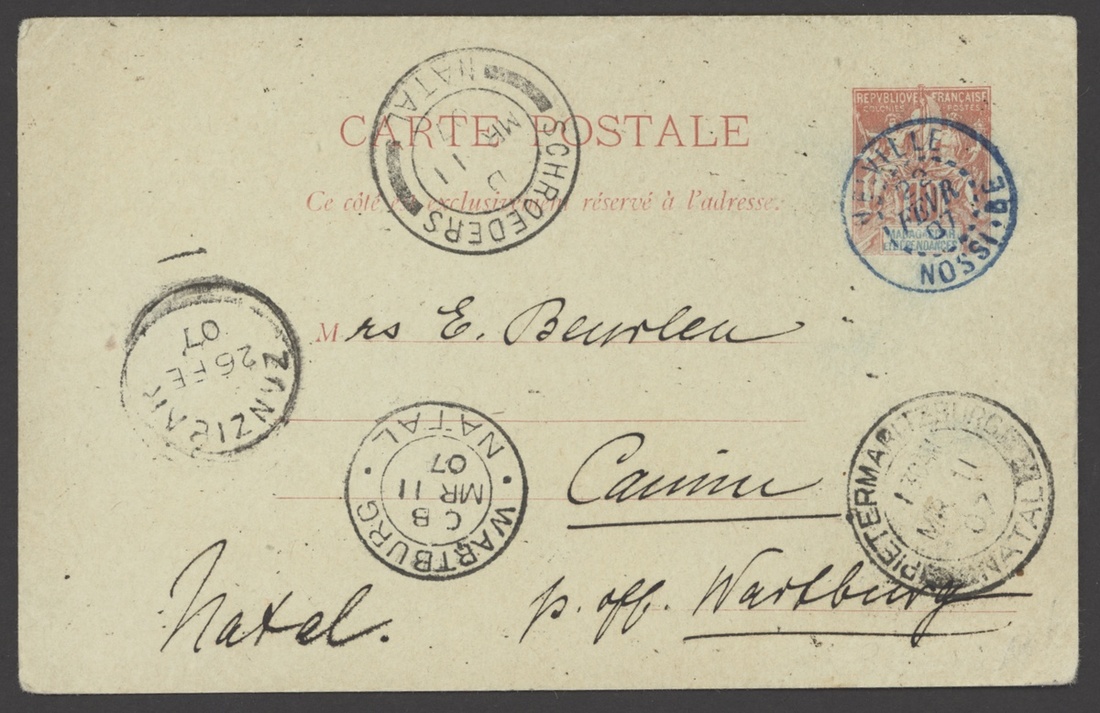 CARTE POSTALE
Ce côté est exclusivement réservé à l'adresse.
REPVBLIQVE FRANÇAISE
COLONIES POSTES
10
MADAGASCAR
ET DÉPENDANCES
HELL-VILLE
22
FEVR
07
NOSSI-BE
SCHROEDERS
NATAL
D
MR 11
07
ZANZIBAR
26 FE
07
Mrs E. Beurlen
WARTBURG · NATAL ·
C B
MR 11
07
PIETERMARITZBURG
NATAL
MR 11
07
Natal.
p. off. Wartburg